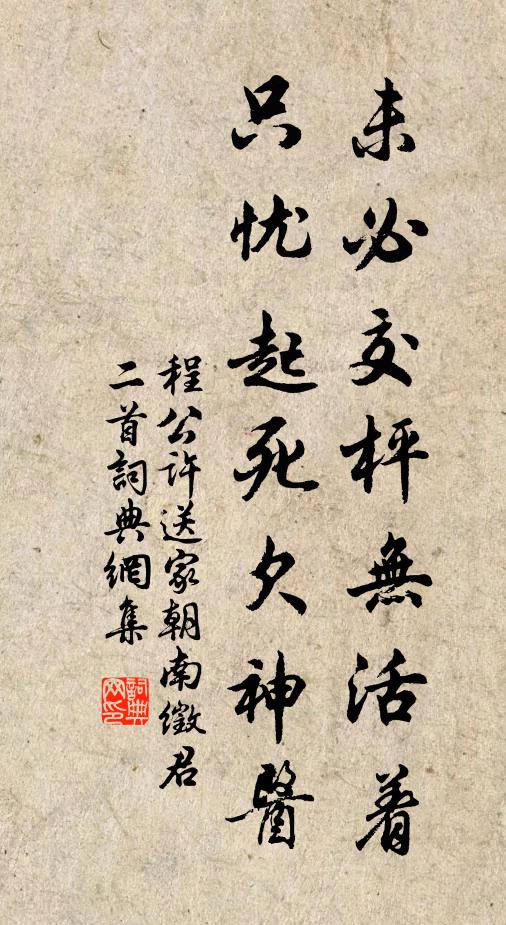 未必交枰無活着
只忧起死欠神醫
程公許送家朝南徵君
二首詞典網集
詞典
网印